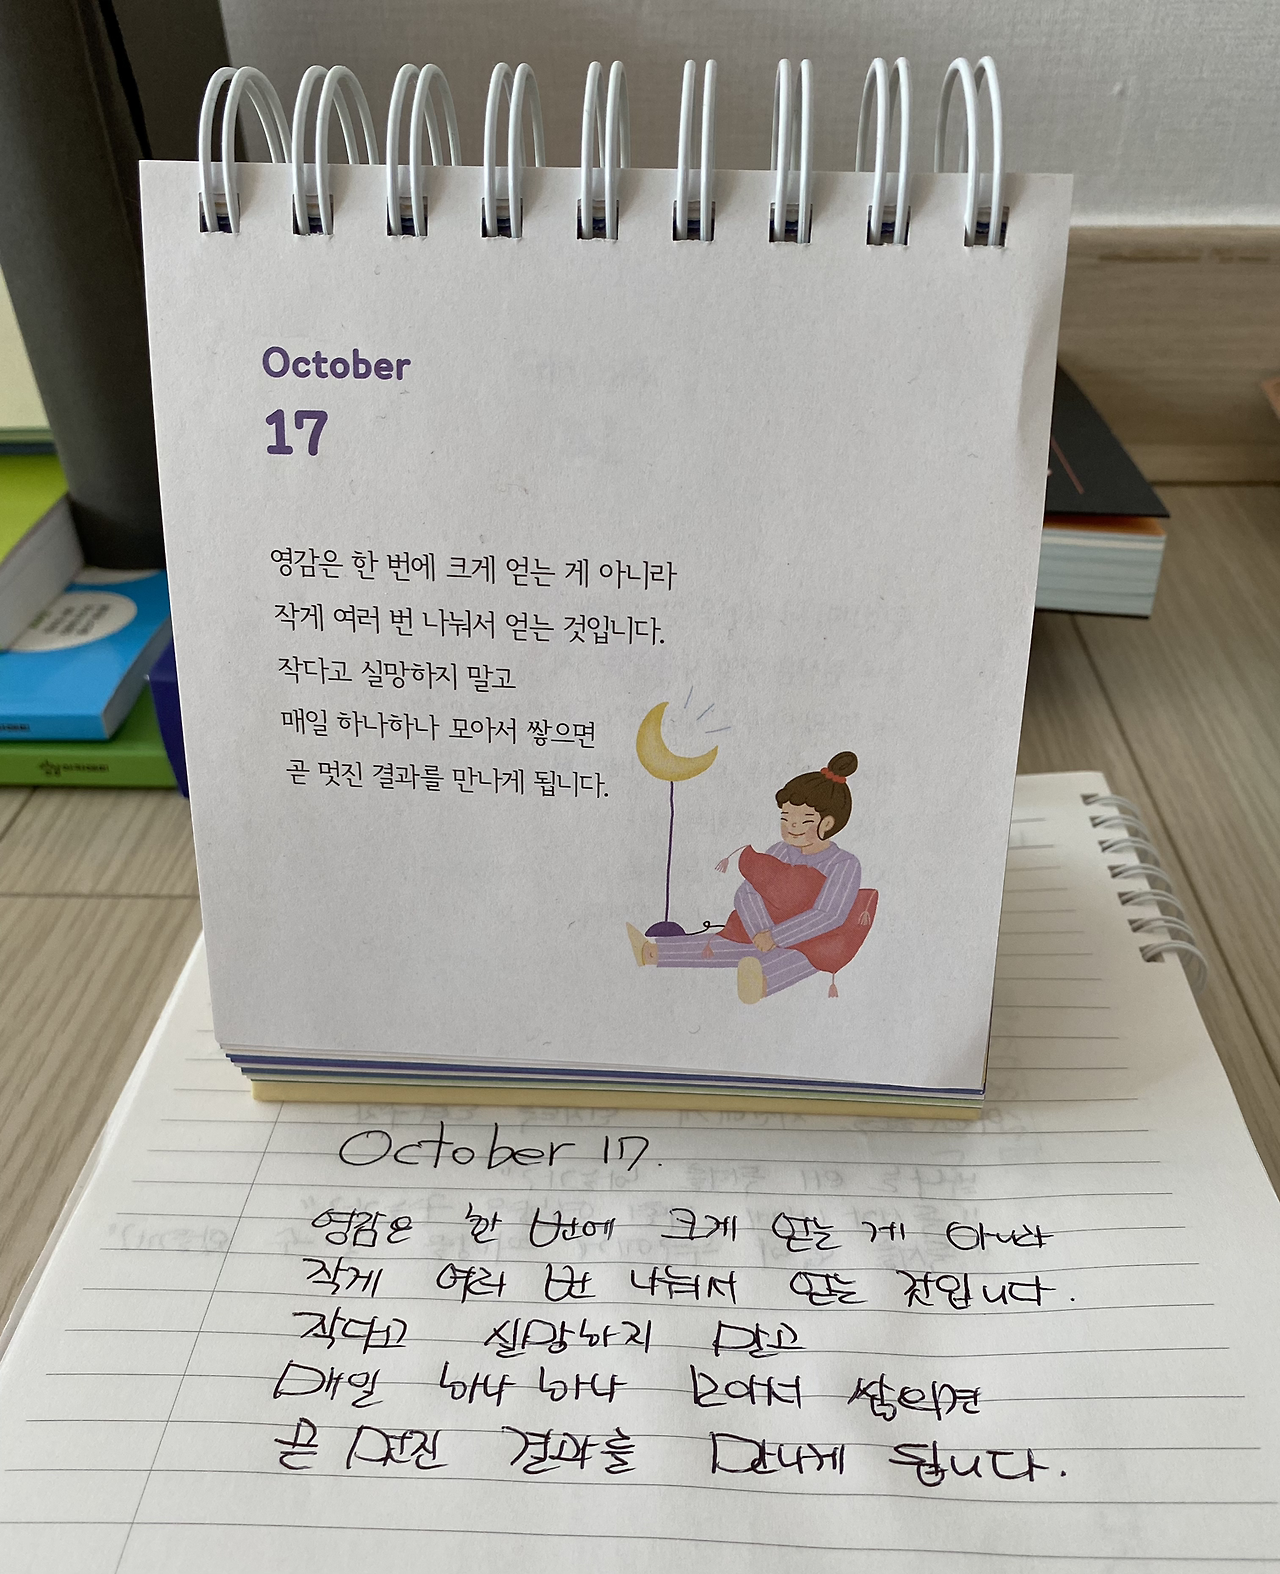 October
17
영감은 한 번에 크게 얻는 게 아니라
작게 여러 번 나눠서 얻는 것입니다.
작다고 실망하지 말고
매일 하나하나 모아서 쌓으면
곧 멋진 결과를 만나게 됩니다.
October 17.
영감은 한 번에 크게 얻는 게 아니라
작게 여러 번 나눠서 얻는 것입니다.
작다고 실망하지 말고
매일 하나하나 모아서 쌓으면
곧 멋진 결과를 만나게 됩니다.